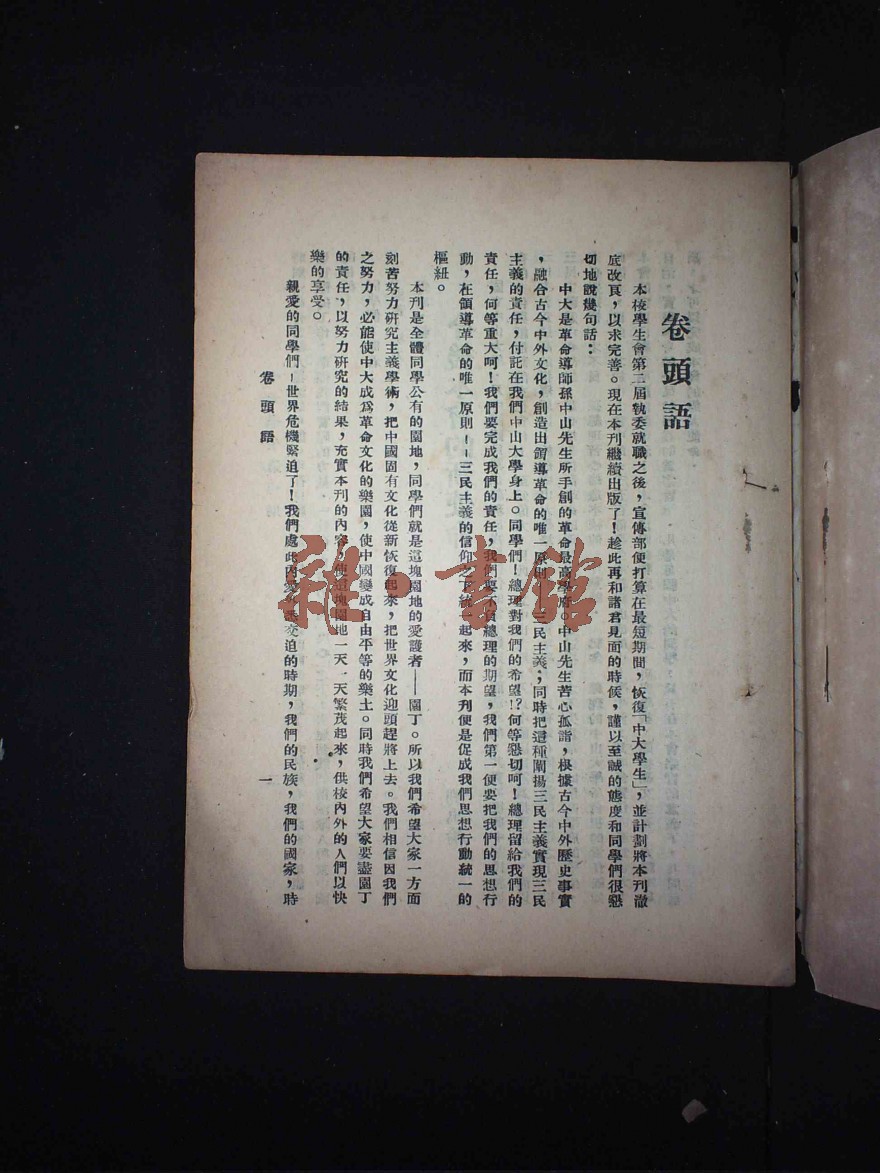 卷頭語
本校學生會第二屆執委就職之後，宣傳部便打算在最短期間，恢復「中大學生」，並計劃將本刊澈
底改頁，以求完善。現在本刊繼續出版了！趁此再和諸君見面的時候，謹以至誠的態度和同學們很懇
切地說幾句話：
中大是革命導師孫中山先生所手創的革命最高學府。中山先生苦心孤詣，根據古今中外歷史事實
，融合古今中外文化，創造出領導革命的唯一原則——三民主義；同時把這種闡揚三民主義實現三民
主義的責任，付託在我們中山大學身上。同學們！總理對我們的希望！？何等懇切呵！總理留給我們的
責任，何等重大呵！我們要完成我們的責任，我們要不負總理的期望，我們第一便要把我們的思想行
動，在領導革命的唯一原則——三民主義的信仰之下統一起來，而本刊便是促成我們思想行動統一的
樞紐。
本刊是全體同學公有的園地，同學們就是這塊園地的愛護者——園丁。所以我們希望大家一方面
刻苦努力研究主義學術，把中國固有文化從新恢復起來，把世界文化迎頭趕將上去。我們相信因我們
之努力，必能使中大成爲革命文化的樂園，使中國變成自由平等的樂土。同時我們希望大家要盡園丁
的責任，以努力研究的結果，充實本刊的內容，使這塊園地一天一天繁茂起來，供校內外的人們以快
樂的享受。
親愛的同學們！世界危機緊迫了！我們處此內憂外患交迫的時期，我們的民族，我們的國家，時
卷頭語
一
雜·書館